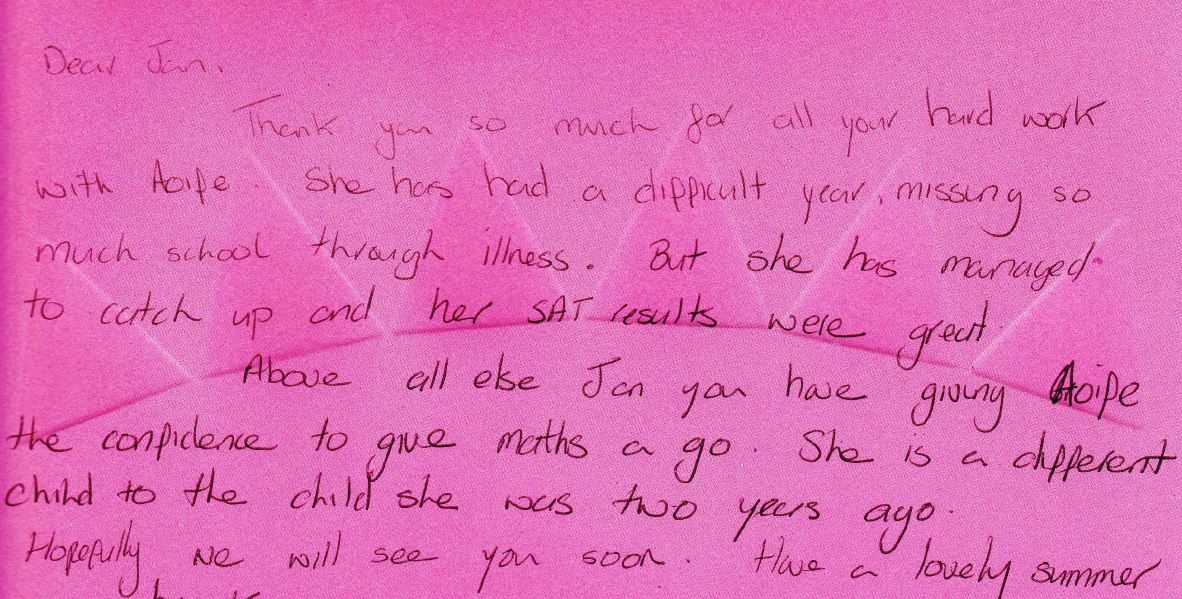 Dear Jan.
Thank you so much for all your hard work
with Aoife. She has had a difficult year, missing so
much school through illness. But she has managed
to catch up and her SAT results were great.
Above all else Jan you have giving Aoife
the confidence to give maths a go. She is a different
child to the child she was two years ago.
Hopefully we will see you soon. Have a lovely summer